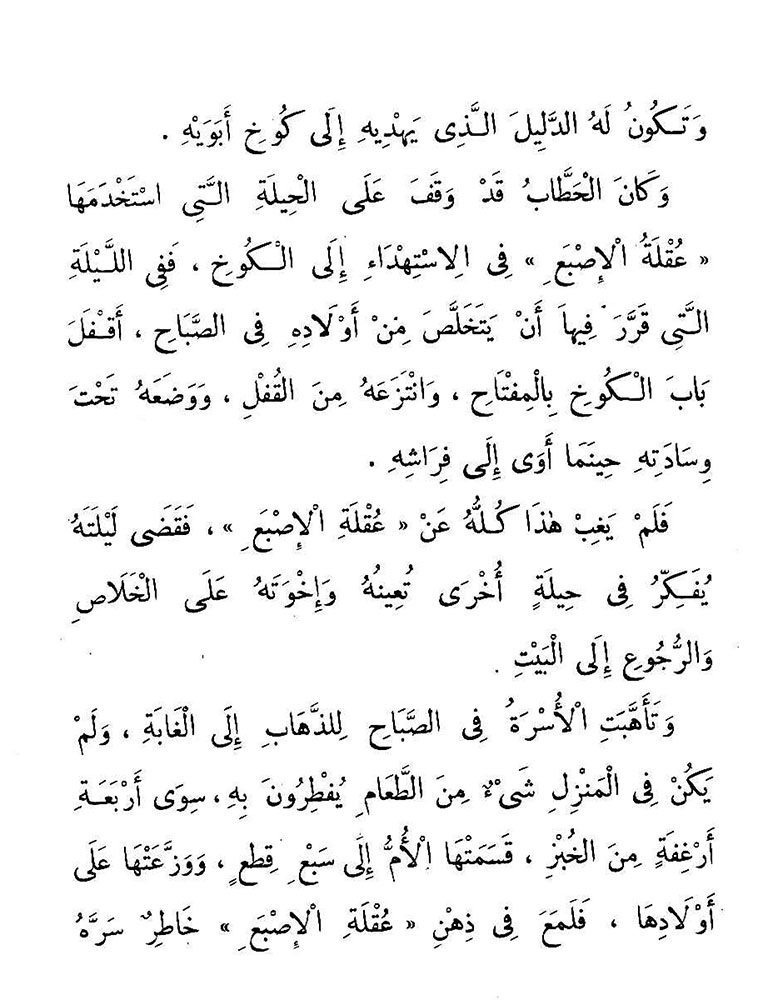 وَتَكُونُ لَهُ الدَّلِيلَ الَّذِى يَهْدِيهِ إِلَى كُوخِ أَبَوَيْهِ .
وَكَانَ الْحَطَّابُ قَدْ وَقَفَ عَلَى الْحِيلَةِ الَّتِى اسْتَخْدَمَهَا
« عُقْلَةُ الْإِصْبَعِ » فِى الِاسْتِهْدَاءِ إِلَى الْكُوخِ ، فَفِى اللَّيْلَةِ
الَّتِى قَرَّرَ فِيهاَ أَنْ يَتَخَلَّصَ مِنْ أَوْلَادِهِ فِى الصَّبَاحِ ، أَقْفَلَ
بَابَ الْكُوخِ بِالْمِفْتَاحِ ، وَانْتَزَعَهُ مِنَ الْقُفْلِ ، وَوَضَعَهُ تَحْتَ
وِسَادَتِهِ حِينَمَا أَوَى إِلَى فِرَاشِهِ .
فَلَمْ يَغِبْ هٰذَا كُلُّهُ عَنْ « عُقْلَةِ الْإِصْبَعِ » ، فَقَضَى لَيْلَتَهُ
يُفَكِّرُ فِى حِيلَةٍ أُخْرَى تُعِينُهُ وَإِخْوَتَهُ عَلَى الْخَلَاصِ
وَالرُّجُوعِ إِلَى الْبَيْتِ .
وَتَأَهَّبَتِ الْأُسْرَةُ فِى الصَّبَاحِ لِلذَّهَابِ إِلَى الْغَابَةِ ، وَلَمْ
يَكُنْ فِى الْمَنْزِلِ شَىْءٌ مِنَ الطَّعَامِ يُفْطِرُونَ بِهِ ، سِوَى أَرْبَعَةِ
أَرْغِفَةٍ مِنَ الْخُبْزِ ، قَسَمَتْهَا الْأُمُّ إِلَى سَبْعِ قِطَعٍ ، وَوَزَّعَتْهَا عَلَى
أَوْلَادِهَا ، فَلَمَعَ فِى ذِهْنِ « عُقْلَةِ الْإِصْبَعِ » خَاطِرٌ سَرَّهُ